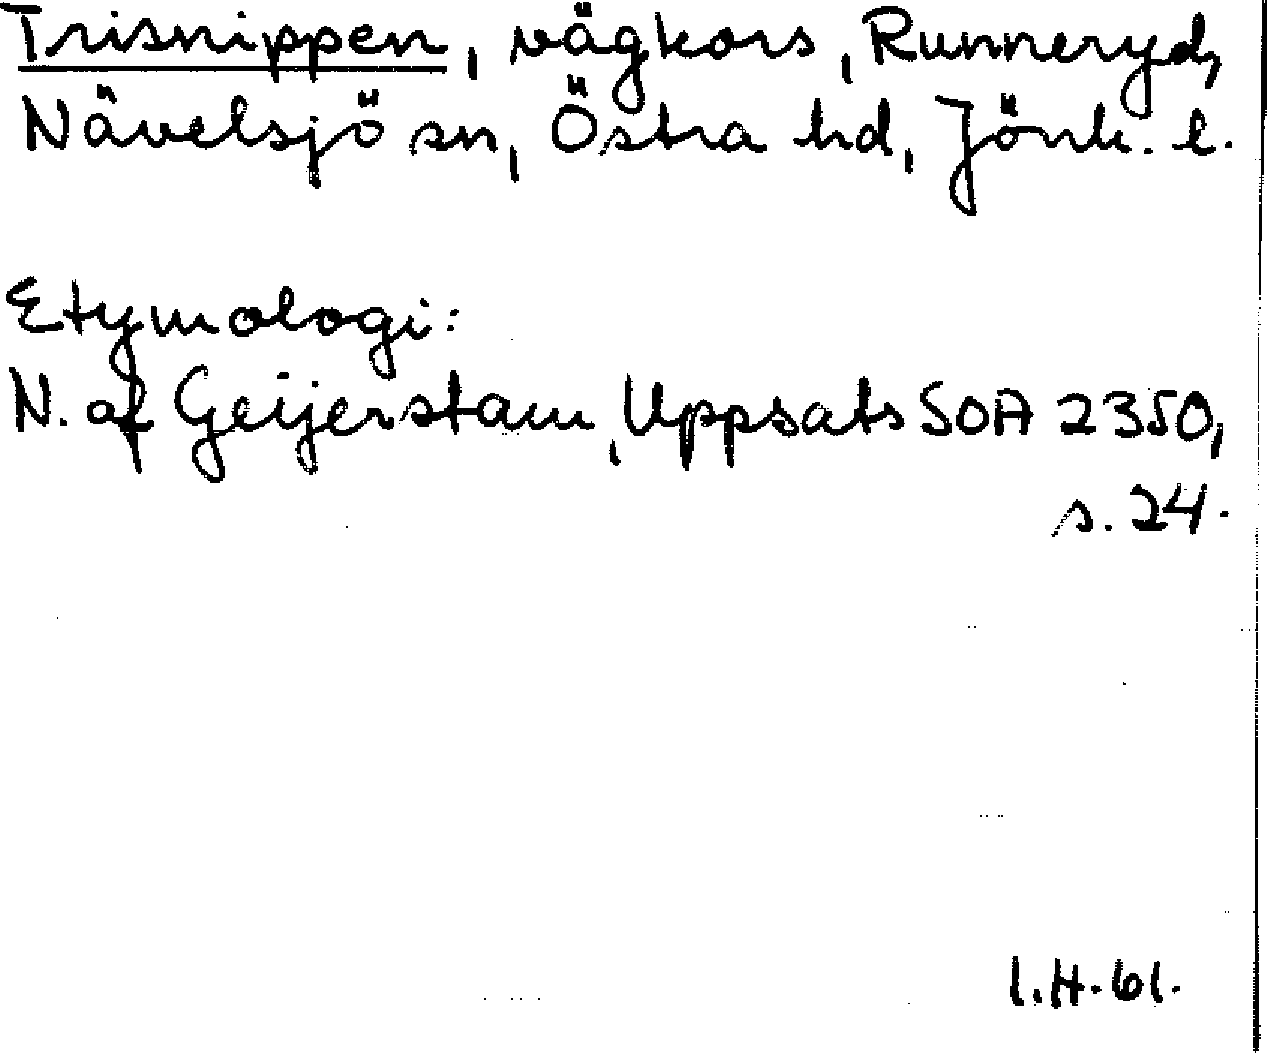 Trisnippen, vägkors, Runneryd,
Nävelsjö sn, Östra hd, Jönk. l.
Etymologi:
N. af Geijerstam, Uppsats SOA 2350,
s. 24.
I.H. 61.